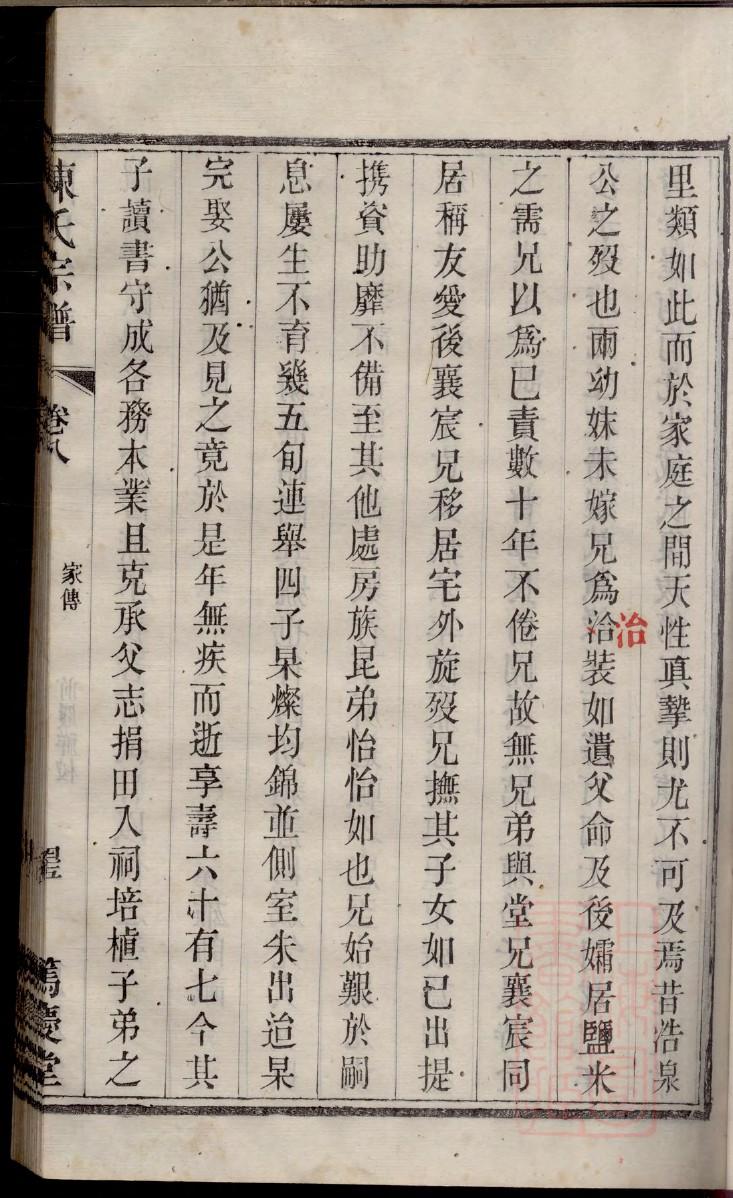 里類如此而於家庭之間天性眞摯則尤不可及焉昔浩泉
公之歿也兩幼妹未嫁兄爲治裝如遺父命及後孀居鹽米
治
之需兄以爲已責數十年不倦兄故無兄弟與堂兄襄宸同
居稱友愛後襄宸兄移居宅外旋歿兄撫其子女如已出提
携資助靡不備至其他處房族昆弟怡怡如也兄始艱於嗣
息屢生不育幾五旬連舉四子杲燦均錦並側室朱出迨杲
完娶公猶及見之竟於是年無疾而逝享壽六十有七今其
子讀書守成各務本業且克承父志捐田入祠培植子弟之
陳氏宗譜
卷八
家傳
篤慶堂